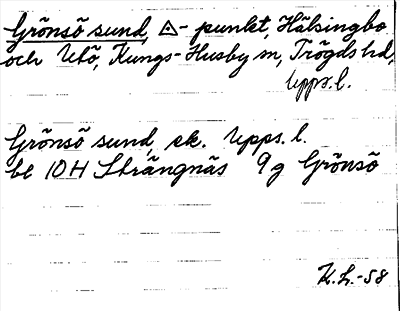 Grönsö sund, △-punkt, Hälsingbo
och Utö, Kungs-Husby sn, Trögds hd,
Upps. l.
Grönsö sund, ek. Upps. l.
bl 10H Strängnäs 9g Grönsö
K.L.-58